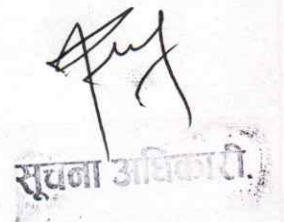 सूचना अधिकारी.